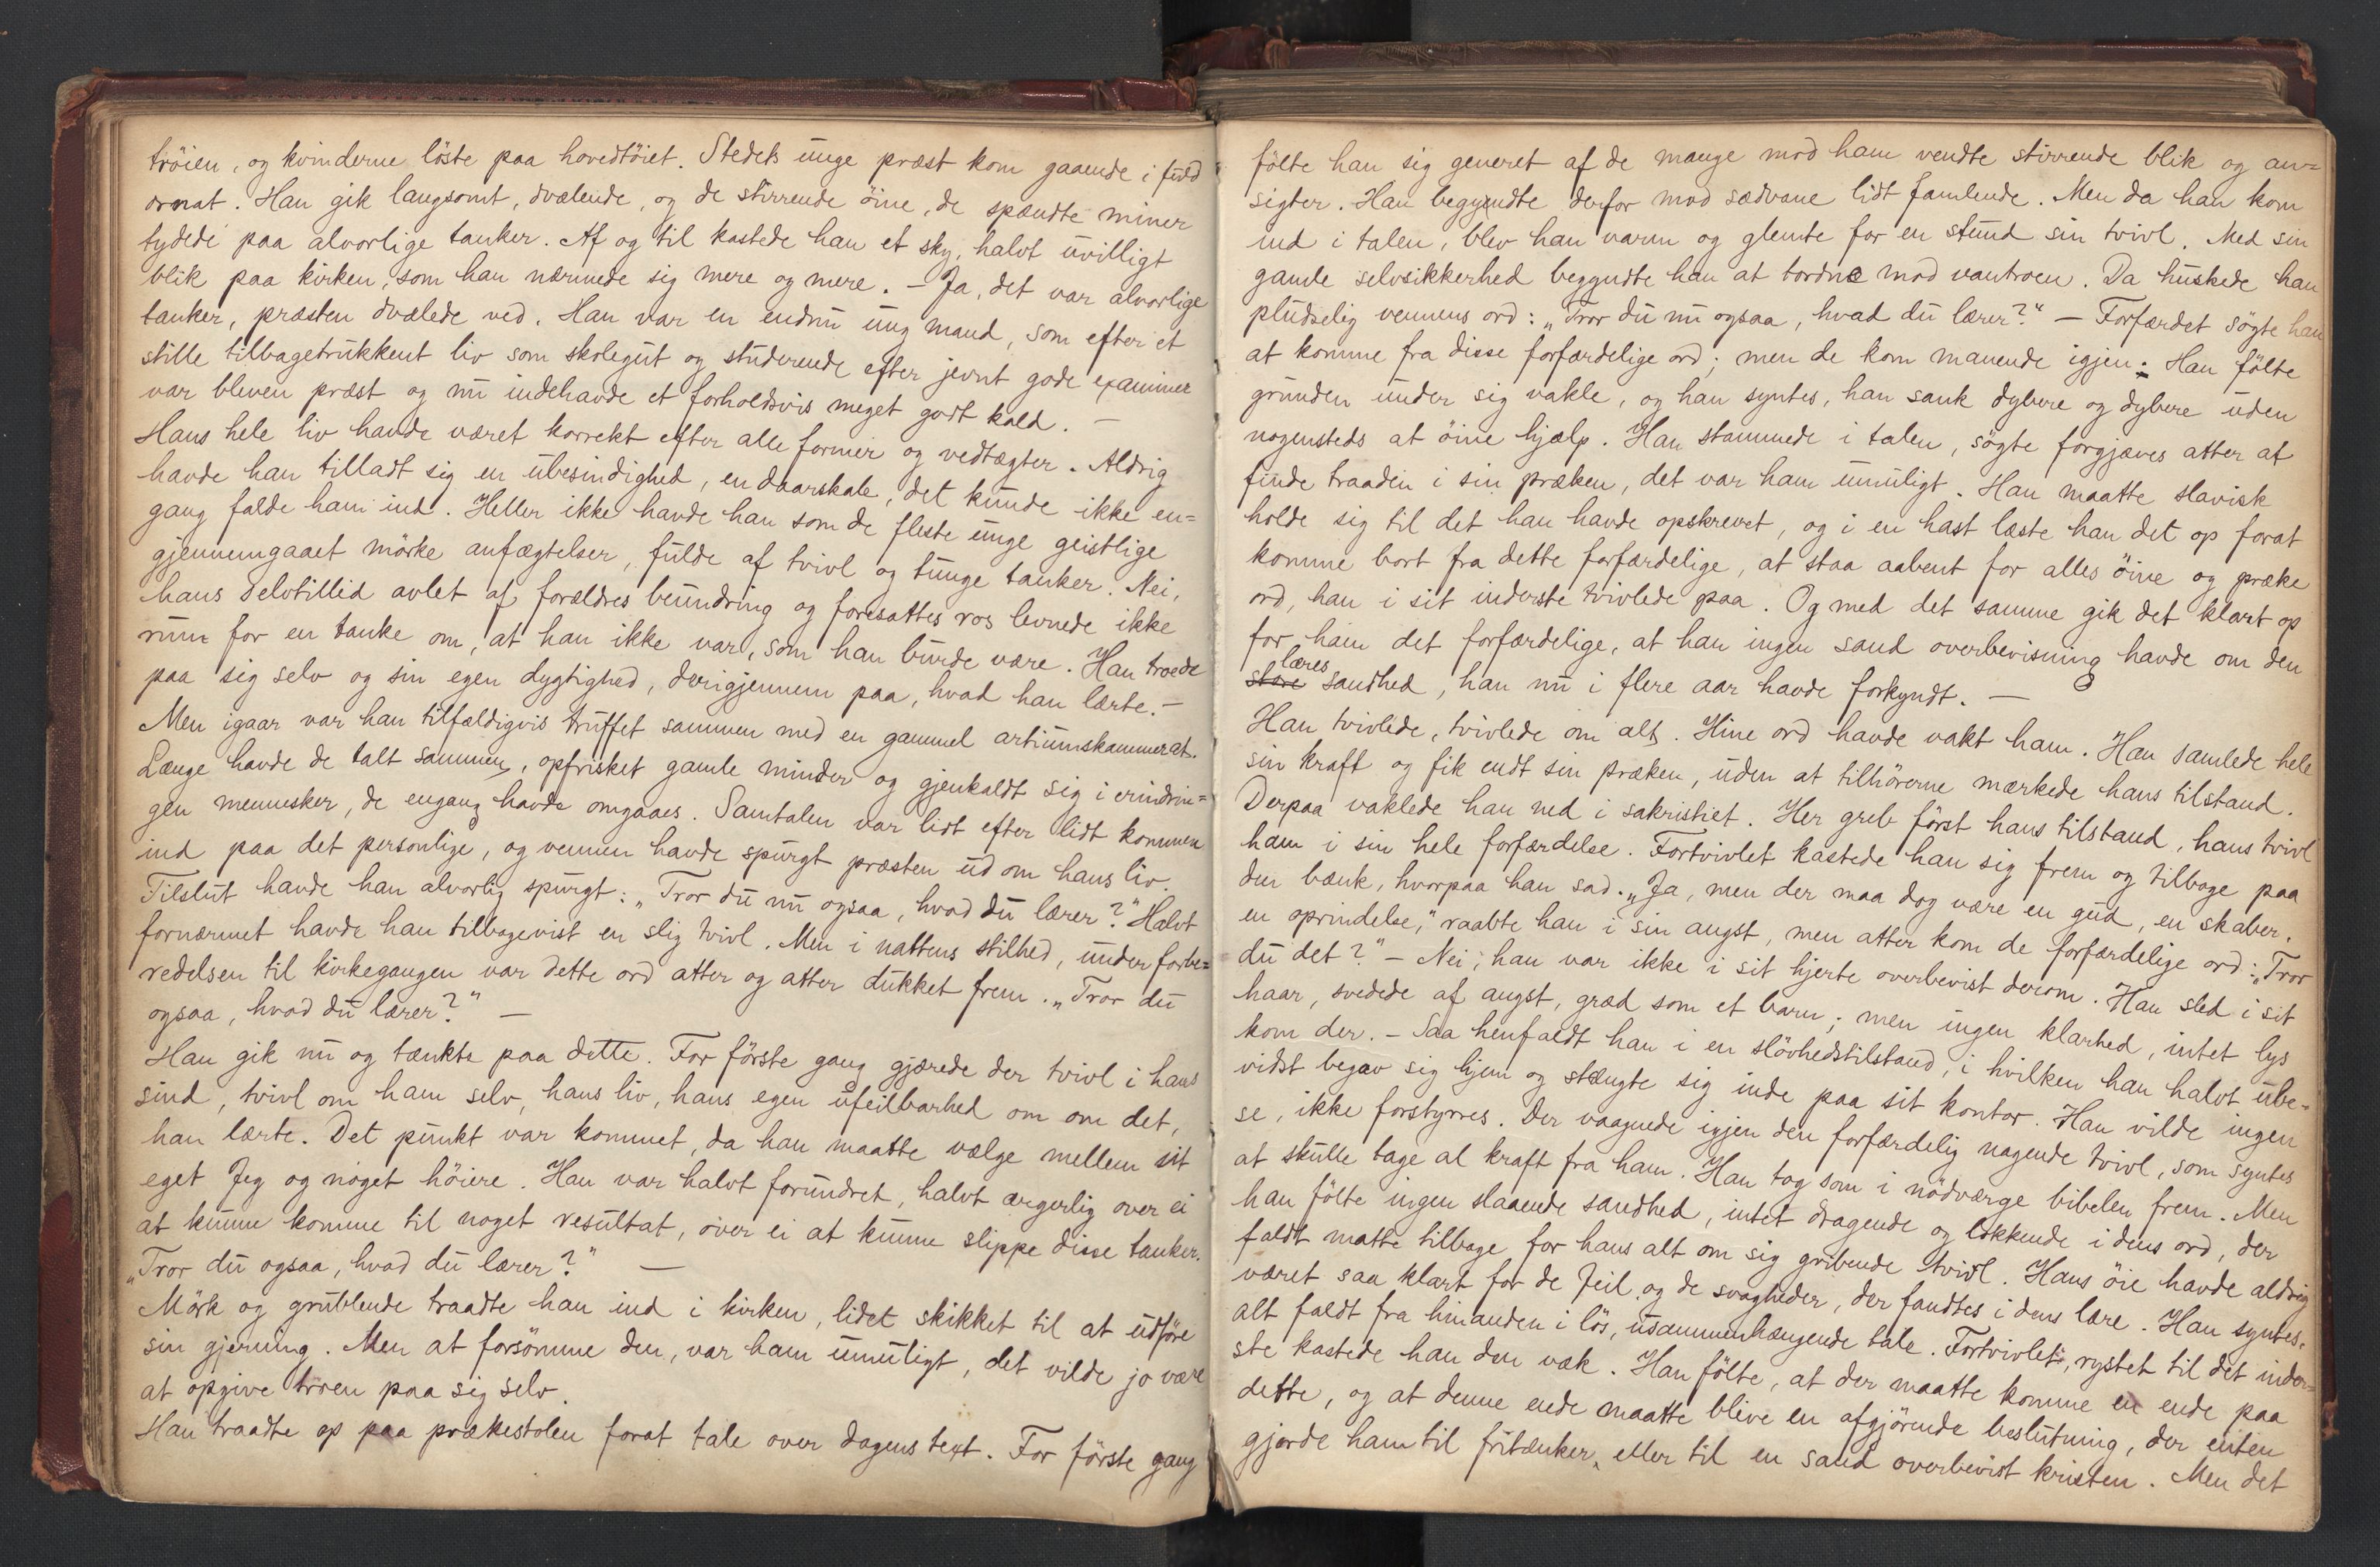 tröien, og kvinderne löste paa hovedtöiet. Stedets unge præst kom gaaende i fuld
ornat. Han gik langsomt, dvælende, og de stirrende öine, de spændte miner
tydede paa alvorlige tanker. Af og til kastede han et sky, halvt uvilligt
blik paa kirken, som han nærmede sig mere og mere. – Ja, det var alvorlige
tanker, præsten dvælede ved. Han var en endnu ung mand, som efter et
stille tilbagetrukkent liv som skolegut og studerende efter jevnt gode examiner
var bleven præst og nu indehavde et forholdsvis meget godt kald. –
Hans hele liv havde været korrekt efter alle former og vedtægter. Aldrig
havde han tilladt sig en ubesindighed, en daarskab, det kunde ikke en=
gang falde ham ind. Heller ikke havde han som de fleste unge geistlige
gjennemgaaet mörke anfægtelser, fulde af tvivl og tunge tanker. Nei,
hans selvtillid avlet af forældres beundring og foresattes ros levnede ikke
rum for en tanke om, at han ikke var, som han burde være. Han troede
paa sig selv og sin egen dygtighed, derigjennem paa, hvad han lærte. –
Men igaar var han tilfældigvis truffet sammen med en gammel artiumskammerat.
Længe havde de talt sammen, opfrisket gamle minder og gjenkaldt sig i erindrin=
gen mennesker, de engang havde omgaaes. Samtalen var lidt efter lidt kommen
ind paa det personlige, og vennen havde spurgt præsten ud om hans liv.
Tilslut havde han alvorlig spurgt: „Tror du nu ogsaa, hvad du lærer?" Halvt
fornærmet havde han tilbagevist en slig tvivl. Men i nattens stilhed, under forbe=
redelsen til kirkegangen var dette ord atter og atter dukket frem. „Tror du
ogsaa, hvad du lærer?" –
Han gik nu og tænkte paa dette. For förste gang gjærede der tvivl i hans
sind, tvivl om ham selv, hans liv, hans egen ufeilbarhed om om det,
han lærte. Det punkt var kommet, da han maatte vælge mellem sit
eget Jeg og noget höiere. Han var halvt forundret, halvt ærgerlig over ei
at kunne komme til noget resultat, over ei at kunne slippe disse tanker.
„Tror du ogsaa, hvad du lærer?" –
Mörk og grublende traadte han ind i kirken, lidet skikket til at udföre
sin gjerning. Men at forsömme den, var ham umuligt, det vilde jo være
at opgive troen paa sig selv.
Han traadte op paa prækestolen forat tale over dagens text. For förste gang
fölte han sig generet af de mange mod ham vendte stirrende blik og an=
sigter. Han begyndte derfor mod sædvane lidt famlende. Men da han kom
ind i talen, blev han varm og glemte for en stund sin tvivl. Med sin
gamle selvsikkerhed begyndte han at tordne mod vantroen. Da huskede han
pludselig vennens ord: „Tror du nu ogsaa, hvad du lærer?" – Forfærdet sögte han
at komme fra disse forfærdelige ord; men de kom manende igjen: Han fölte
grunden under sig vakle, og han syntes, han sank dybere og dybere uden
nogensteds at öine hjælp. Han stammede i talen, sögte forgjæves atter at
finde traaden i sin præken, det var ham umuligt. Han maatte slavisk
holde sig til det han havde opskrevet, og i en hast læste han det op forat
komme bort fra dette forfærdelige, at staa aabent for alles öine og præke
ord, han i sit inderste tvivlede paa. Og med det samme gik det klart op
for ham det forfærdelige, at han ingen sand overbevisning havde om den
læres
store sandhed, han nu i flere aar havde forkyndt. –
Han tvivlede, tvivlede om alt. Hine ord havde vakt ham. Han samlede hele
sin kraft og fik endt sin præken, uden at tilhörerne mærkede hans tilstand.
Derpaa vaklede han ned i sakristiet. Her greb först hans tilstand, hans tvivl
ham i sin hele forfærdelse. Fortvivlet kastede han sig frem og tilbage paa
den bænk, hvorpaa han sad. „Ja, men der maa dog være en gud, en skaber,
en oprindelse," raabte han i sin angst, men atter kom de forfærdelige ord: „Tror
du det?" – Nei; han var ikke i sit hjerte overbevist derom. Han sled i sit
haar, svedede af angst, græd som et barn; men ingen klarhed, intet lys
kom der. – Saa henfaldt han i en slövhedstilstand, i hvilken han halvt ube=
vidst begav sig hjem og stængte sig inde paa sit kontor. Han vilde ingen
se, ikke forstyrres. Der vaagnede igjen den forfærdelig nagende tvivl, som syntes
at skulle tage al kraft fra ham. Han tog som i nödværge bibelen frem. Men
han fölte ingen slaaende sandhed, intet dragende og lokkende i dens ord, der
faldt matte tilbage for hans alt om sig gribende tvivl. Hans öie havde aldrig
været saa klart for de feil og de svagheder, der fandtes i dens lære. Han syntes,
alt faldt fra hinanden i lös, usammenhængende tale. Fortvivlet, rystet til det inder=
ste kastede han den væk. Han fölte, at der maatte komme en ende paa
dette, og at denne ende maatte blive en afgjörende beslutning, der enten
gjorde ham til fritænker, eller til en sand overbevist kristen. Men det